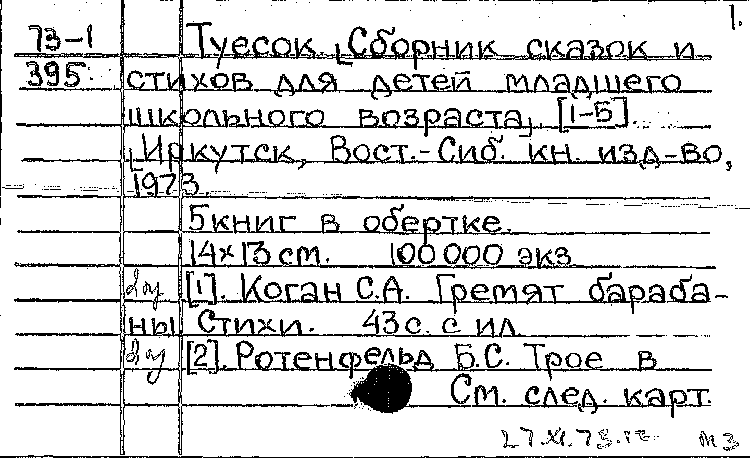 1.
73-1 Туесок. [Сборник сказок и
395 стихов для детей младшего
школьного возраста]. [1-5].
[Иркутск, Вост.-Сиб. кн. изд-во,
1973.
5 книг в обертке.
14х13 см. 100 000 экз
[1]. Коган С.А. Гремят бараба-
ны Стихи. 43 с. с ил.
[2]. Ротенфельд Б.С. Трое в
См. след. карт.
27.XI.73.